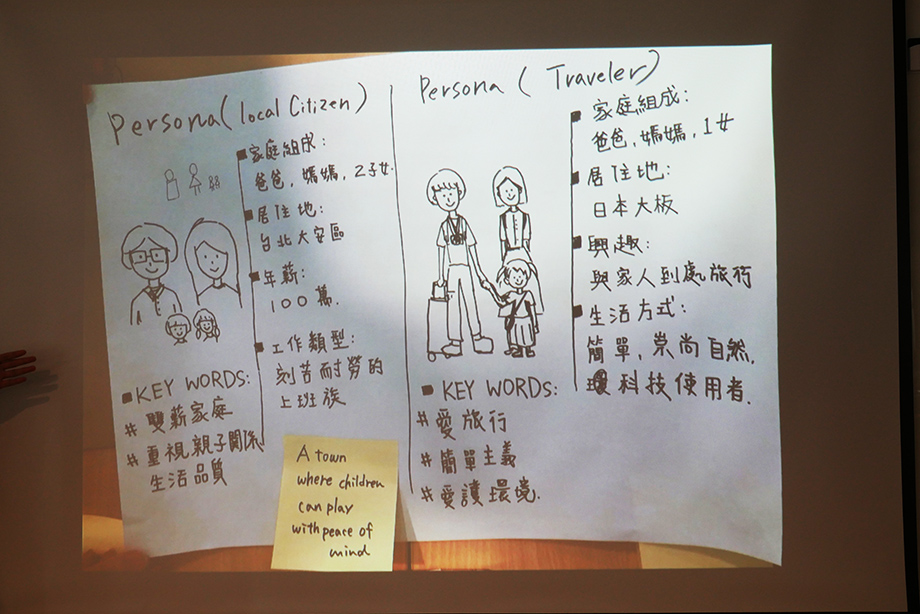 Persona (local Citizen)
■家庭組成:
爸爸,媽媽,2子女.
■居住地:
台北大安區
■年薪:
100萬.
■工作類型:
刻苦耐勞的
上班族
■KEY WORDS:
# 雙薪家庭
# 重視親子關係
生活品質
A town
where children
can play
with peace of
mind
Persona ( Traveler)
■家庭組成:
爸爸,媽媽,1女
■居住地:
日本大板
■興趣:
與家人到處旅行
■生活方式:
簡單,崇尚自然,
科技使用者.
■KEY WORDS:
# 愛旅行
# 簡單主義
# 愛護環境.